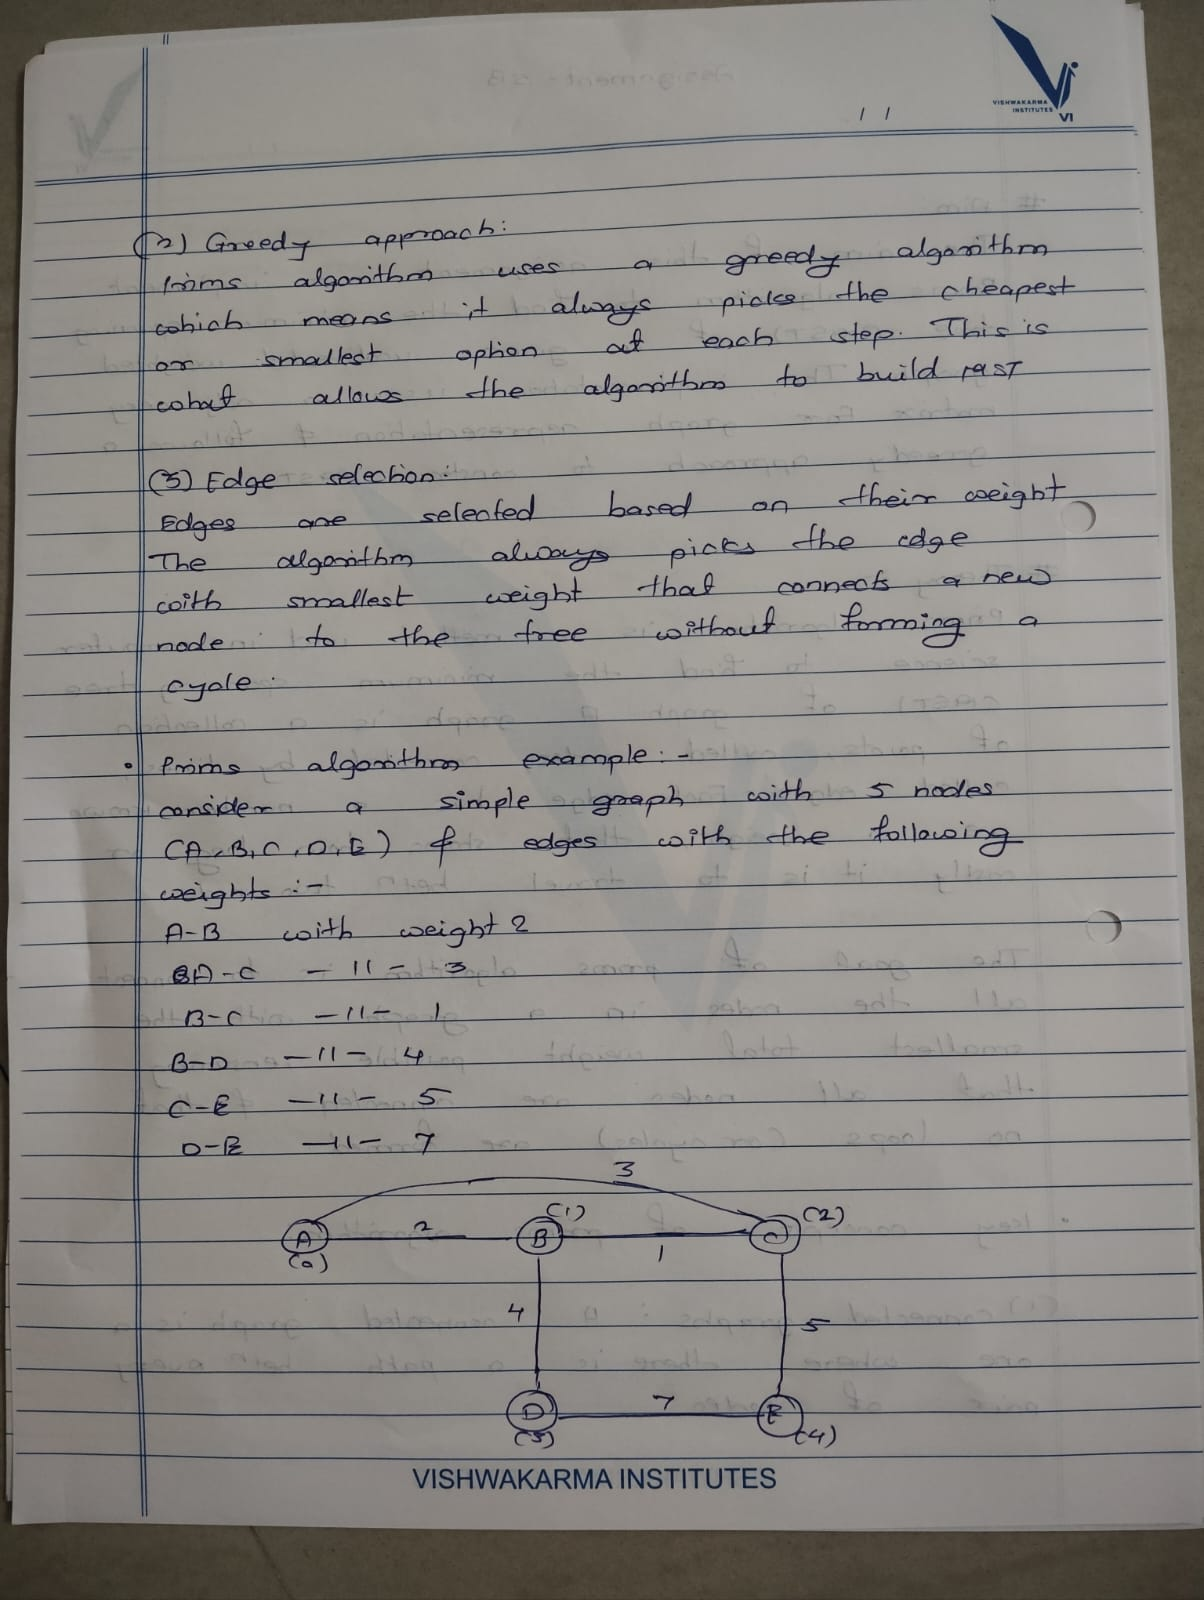 VISHWAKARMA
INSTITUTES
VI
/ /
(2) Greedy approach:
Prims algorithm uses a greedy algorithm
which means it always picks the cheapest
or smallest option at each step. This is
what allows the algorithm to build MST
(3) Edge selection:
Edges are selected based on their weight
The algorithm always picks the edge
with smallest weight that connects a new
node to the tree without forming a
cycle.
• Prims algorithm example:-
consider a simple graph with 5 nodes
(A,B,C,D,E) & edges with the following
weights:-
A-B with weight 2
A-C -11- 3
B-C -11- 1
B-D -11- 4
C-E -11- 5
D-E -11- 7
3
(1) (2)
A 2 B 1 C
(0)
4 5
D 7 E
(3) (4)
VISHWAKARMA INSTITUTES